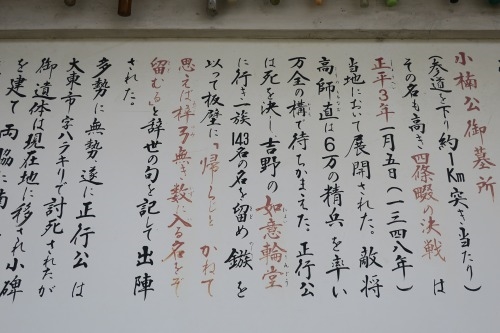 小楠公御墓所
(参道を下り約1Km突き当たり)
その名も高き四條畷の決戦は
正平3年一月五日(一三四八年)
当地において展開された、敵将
高師直は6万の精兵を率い
万全の構で待ちかまえた、正行公
は死を決し吉野の如意輪堂
に行き一族143名の名を留め鏃を
以って板壁に「帰らじと かねて
思えば梓弓無き数に入る名をぞ
留むる」と辞世の句を記して出陣
された。
多勢に無勢遂に正行公は
大東市字ハラキリで討死されたが
御遺体は現在地に移され小碑
を建て両脇に楠